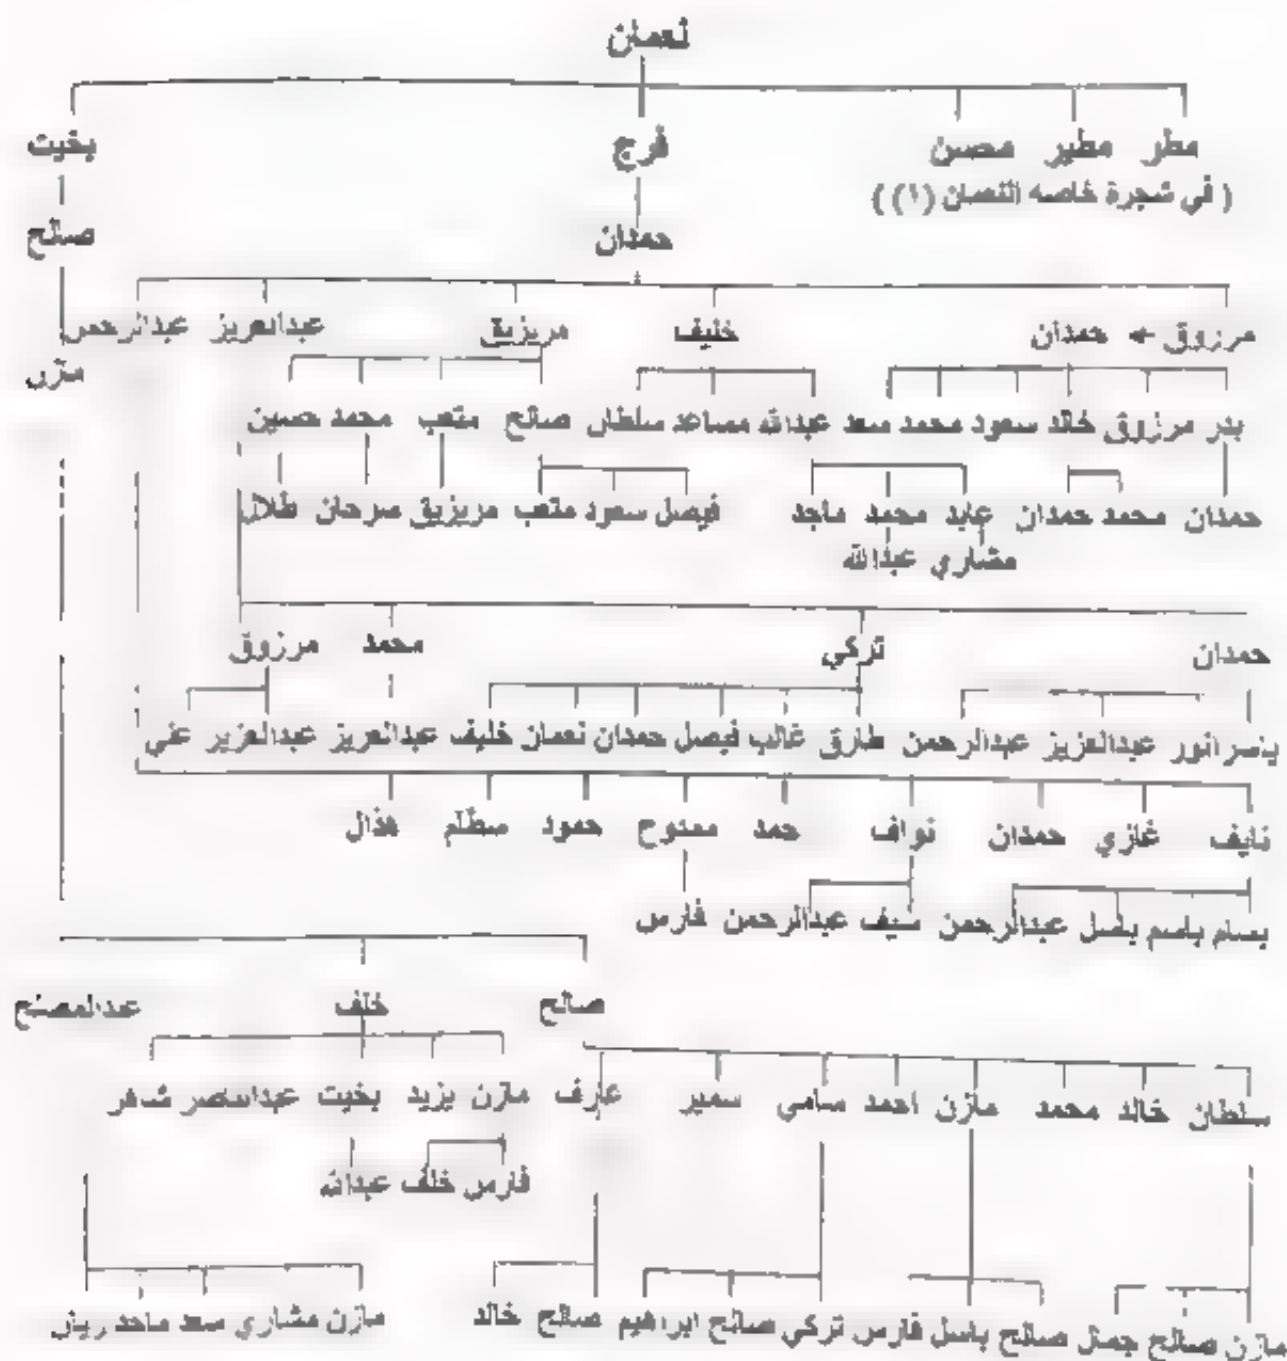 نعمان
مطر مطير محسن فرج بخيت
( في شجرة خاصه النعمان (١) )
حمدان صالح
مرزوق ← حمدان خليف مريزيق عبدالعزيز عبدالرحمن
مازن
بدر مرزوق خالد سعود محمد سعد عبدالله مساعد سلطان صالح متعب محمد حسين
حمدان محمد حمدان عابد محمد ماجد فيصل سعود متعب مريزيق سرحان طلال
مشاري عبدالله
حمدان تركي محمد مرزوق
ياسر انور عبدالعزيز عبدالرحمن طارق غالب فيصل حمدان نعمان خليف عبدالعزيز عبدالعزيز علي
نايف غازي حمدان نواف حمد ممدوح حمود سطام هذال
بسام باسم باسل عبدالرحمن سيف عبدالرحمن فارس
صالح خلف عبدالمصلح
سلطان خالد محمد مازن احمد سامي سمير عارف مازن يزيد بخيت عبدالناصر شاهر
فارس خلف عبدالله
مازن صالح جمال صالح باسل فارس تركي صالح ابراهيم صالح خالد مازن مشاري سعد ماجد ريان